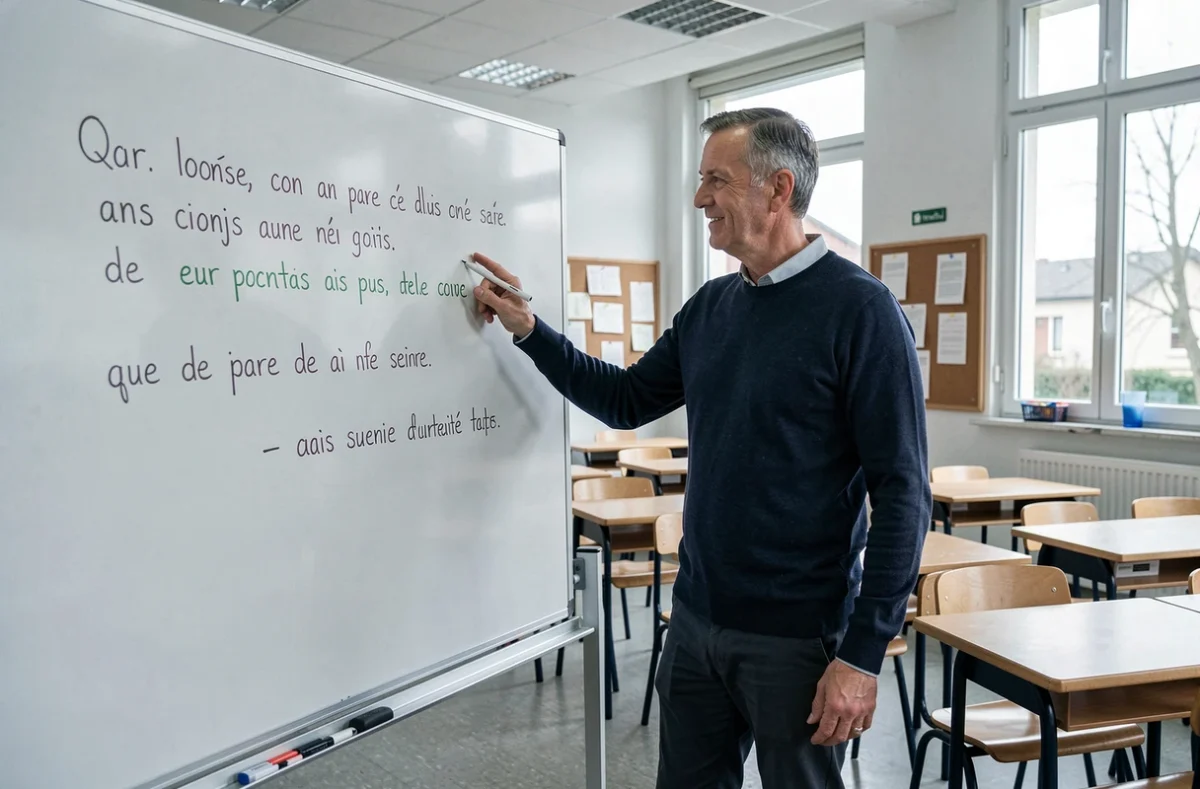 Qar. loońse, con an pare cé dlus oné safe.
ans cionjs aune néi goiis.
de eur pocntás ais pus, dele coive
que de pare de ai nfe seinre.
– aais suenie durteité